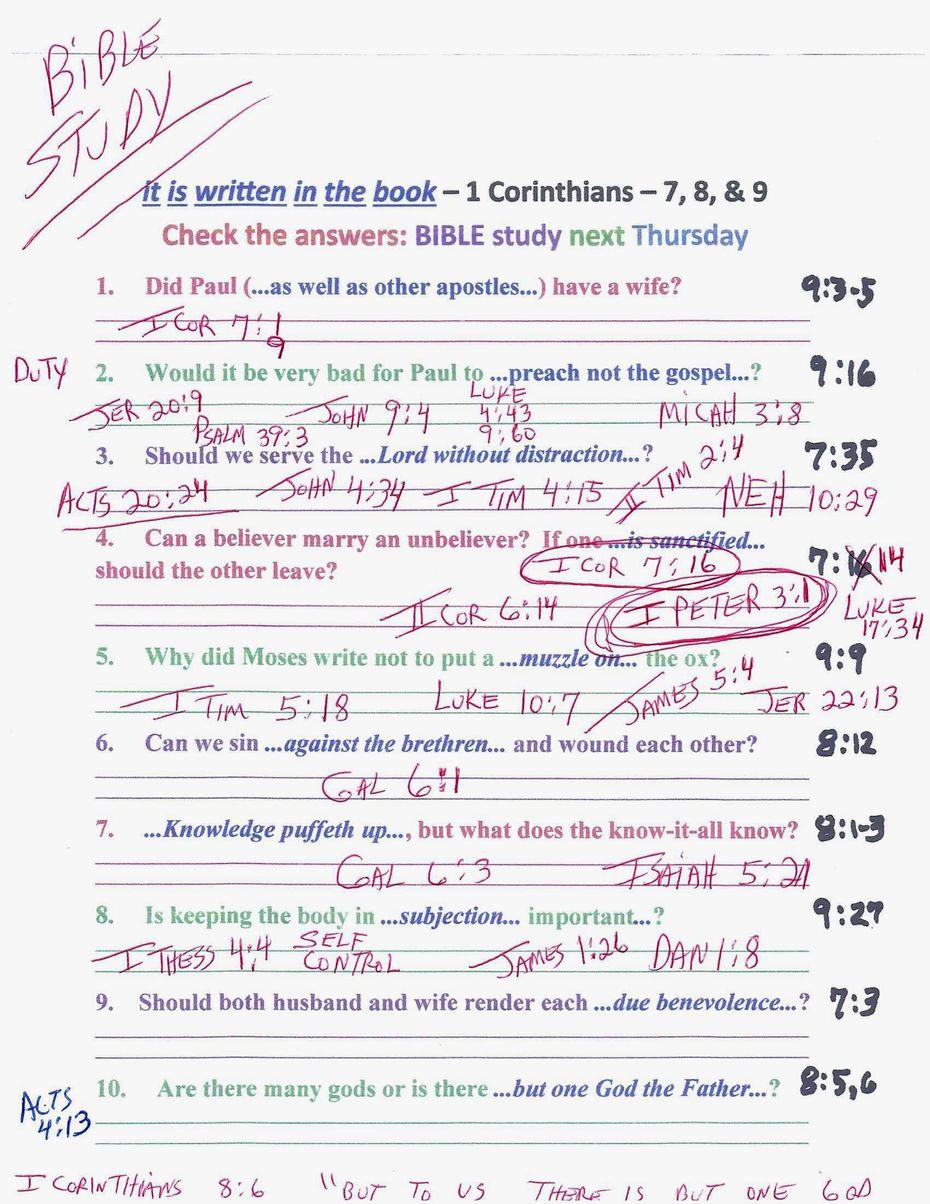 BiBLE
STUDY
it is written in the book – 1 Corinthians – 7, 8, & 9
Check the answers: BIBLE study next Thursday
1. Did Paul (...as well as other apostles...) have a wife? 9:3-5
I COR 7:1
9
DUTY 2. Would it be very bad for Paul to ...preach not the gospel...? 9:16
JER 20:9 JOHN 9:4 LUKE 4:43 MICAH 3:8
PSALM 39:3 9:60
3. Should we serve the ...Lord without distraction...? 7:35
ACTS 20:24 JOHN 4:34 I TIM 4:15 II TIM 2:4 NEH 10:29
4. Can a believer marry an unbeliever? If one ...is sanctified...
should the other leave? I COR 7:16 7:16 14
II COR 6:14 I PETER 3:1 LUKE 17:34
5. Why did Moses write not to put a ...muzzle on... the ox? 9:9
I TIM 5:18 LUKE 10:7 JAMES 5:4 JER 22:13
6. Can we sin ...against the brethren... and wound each other? 8:12
GAL 6:1
7. ...Knowledge puffeth up..., but what does the know-it-all know? 8:1-3
GAL 6:3 ISAiAH 5:21
8. Is keeping the body in ...subjection... important...? 9:27
I THESS 4:4 SELF CONTROL JAMES 1:26 DAN 1:8
9. Should both husband and wife render each ...due benevolence...? 7:3
10. Are there many gods or is there ...but one God the Father...? 8:5,6
ACTS
4:13
I CORINTHIANS 8:6 "BUT TO US THERE IS BUT ONE GOD